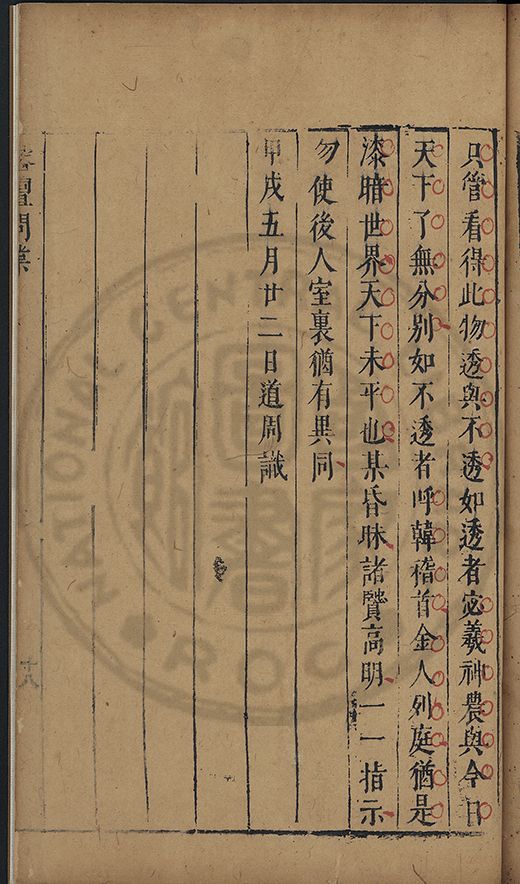 只管看得此物透與不透如透者宓羲神農與今日
天下了無分別如不透者呼韓稽首金人列庭猶是
漆暗世界天下未平也某昏昧諸賢高明一一指示
勿使後人室裏猶有異同
甲戌五月廿二日道周識
榕壇問業
十八